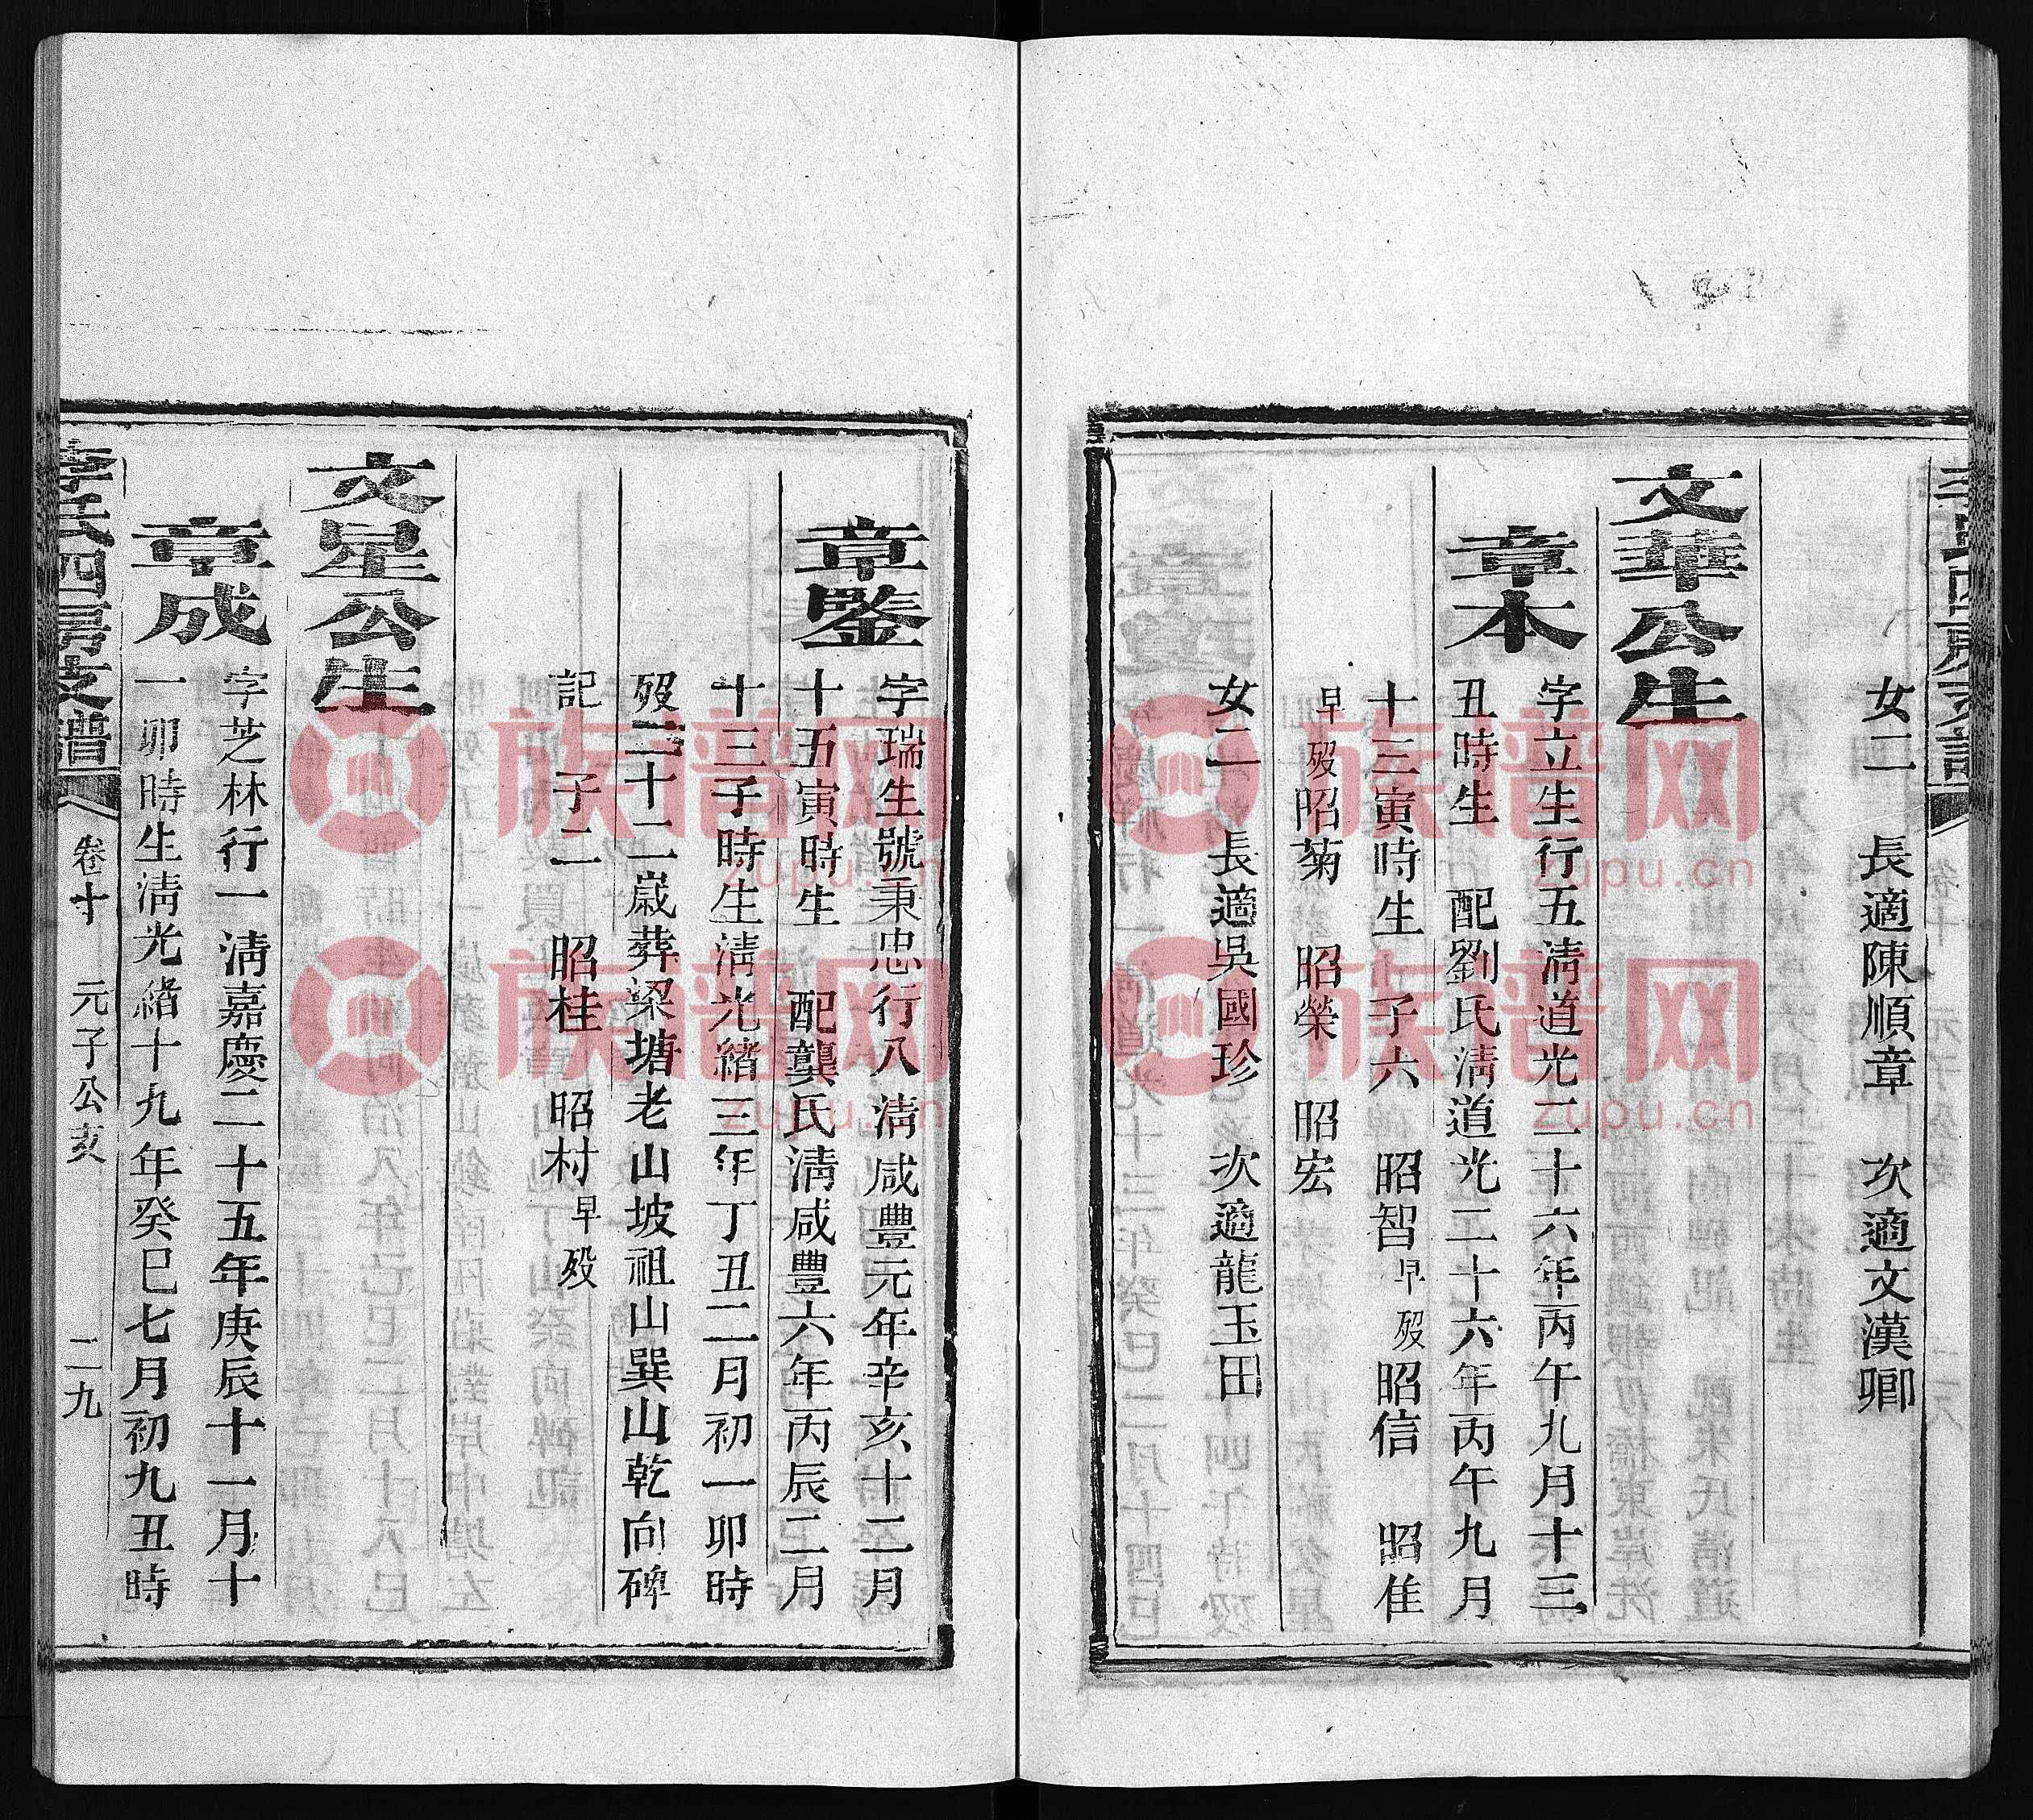 女二　長適陳順章　次適文漢卿
文華公生
章本　字立生行五淸道光二十六年丙午九月十三
丑時生　配劉氏淸道光二十六年丙午九月
十三寅時生　子六　昭智早歿昭信　昭隹
早歿昭菊　昭榮　昭宏
女二　長適吳國珍　次適龍玉田
章鑒　字瑞生號秉忠行八淸咸豐元年辛亥十二月
十五寅時生　配龔氏淸咸豐六年丙辰二月
十三子時生淸光緒三年丁丑二月初一卯時
歿二十二嵗葬梁塘老山坡祖山巽山乾向碑
記　子二　昭桂　昭村早歿
文星公生
章成　字芝林行一淸嘉慶二十五年庚辰十一月十
一卯時生淸光緒十九年癸巳七月初九丑時
李氏四房支譜　卷十　元子公亥　二九
族譜网
zupu.cn
族譜网
zupu.cn
族譜网
zupu.cn
族譜网
zupu.cn